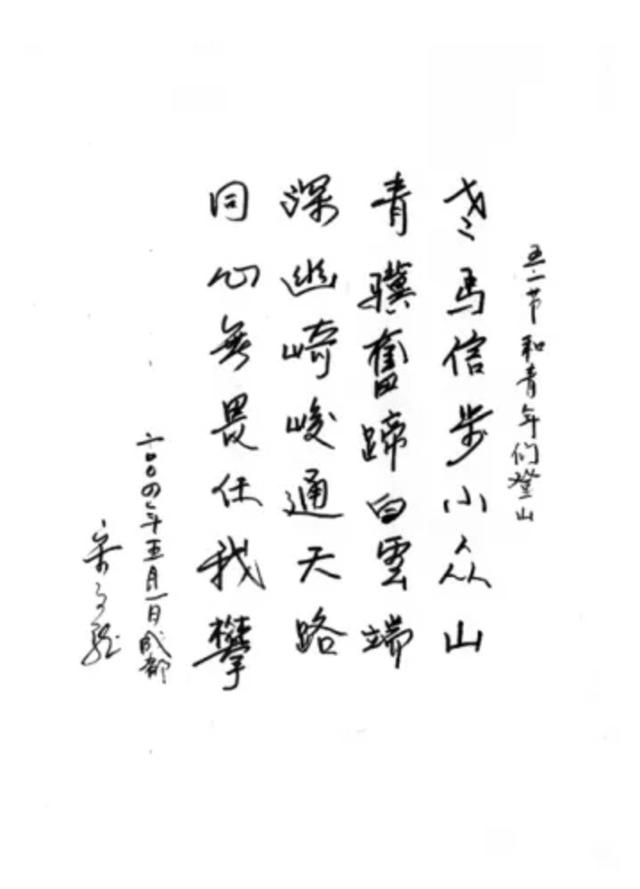 五一节和青年们登山
老马信步小众山
青骥奮蹄白雲端
深幽崎峻通天路
同心無畏任我攀
二〇〇四年五月一日成都
宋文骢